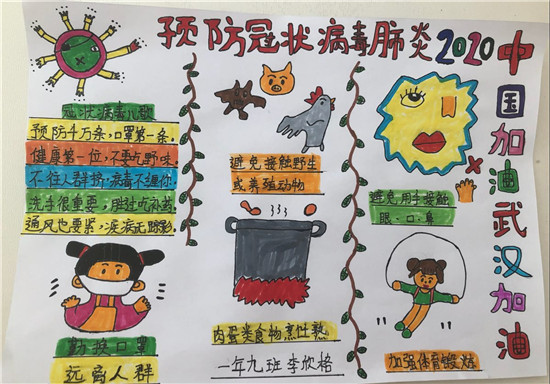 预防冠状病毒肺炎2020
中国加油武汉加油
冠状病毒儿歌
预防千万条,口罩第一条。
健康第一位,不要吃野味。
不往人群挤,病毒不缠你。
洗手很重要,胜过吃补药。
通风也要紧,泥痕无踪影。
勤换口罩
远离人群
避免接触野生
或养殖动物
肉蛋类食物烹饪熟
一年九班 李欣格
避免用手接触
眼、口、鼻
加强体育锻炼